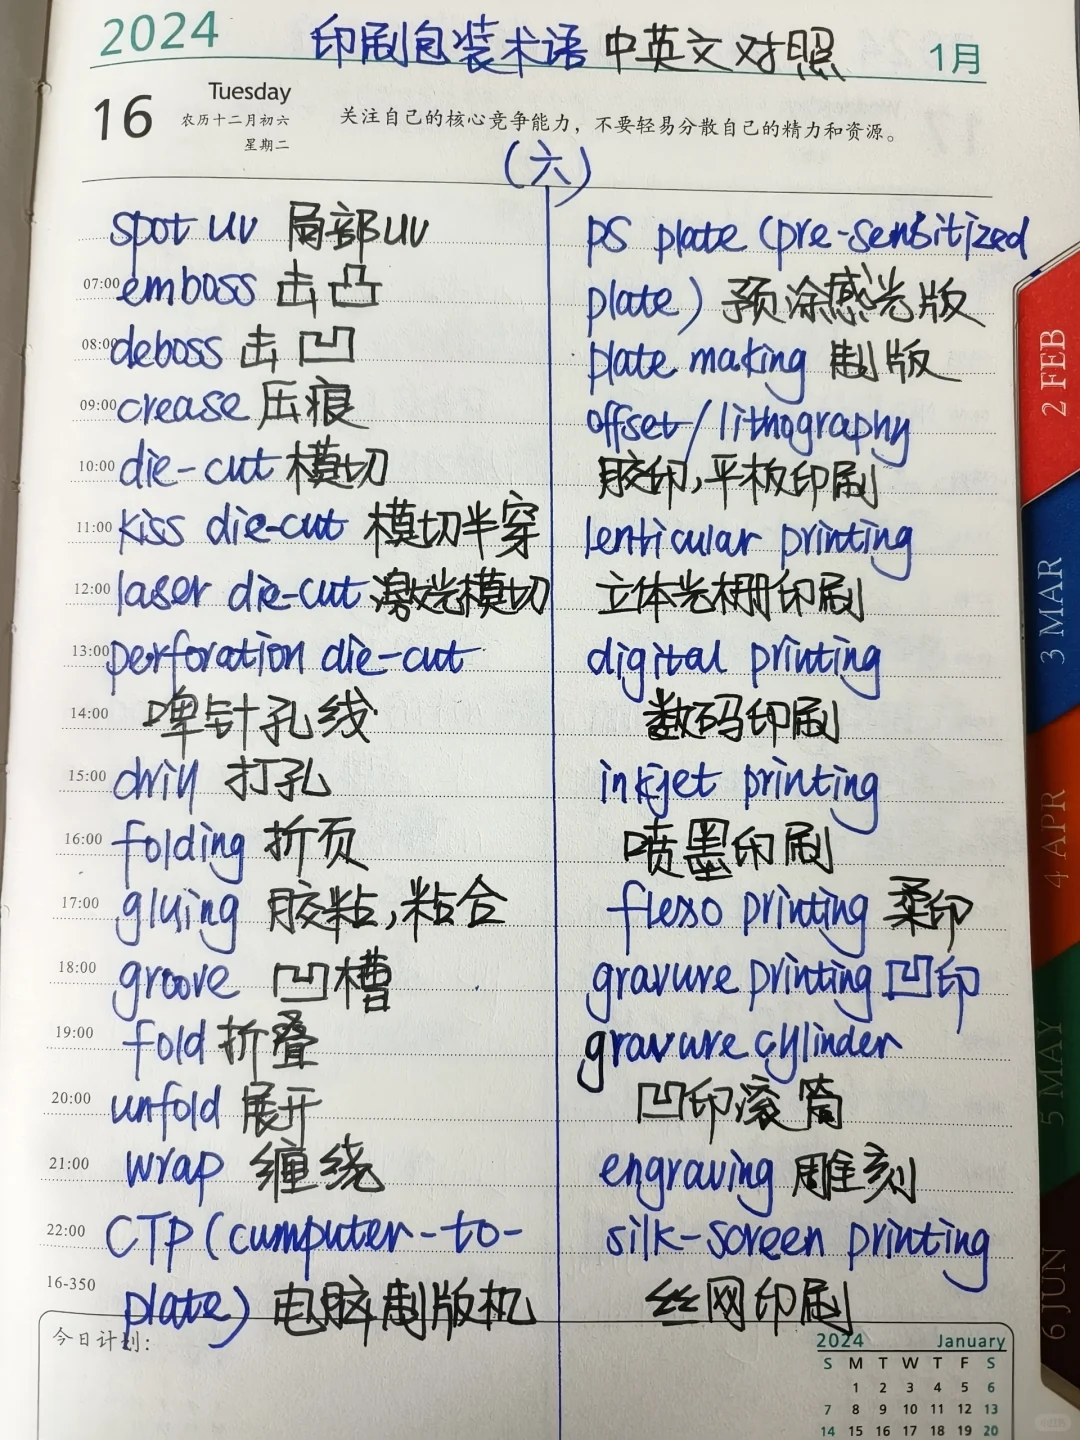 2024 印刷包装术语 中英文对照 1月
16 Tuesday
农历十二月初六
星期二
关注自己的核心竞争能力，不要轻易分散自己的精力和资源。
（六）
spot uv 局部uv
07:00 emboss 击凸
08:00 deboss 击凹
09:00 crease 压痕
10:00 die-cut 模切
11:00 kiss die-cut 模切半穿
12:00 laser die-cut 激光模切
13:00 perforation die-cut
14:00 啤针孔线
15:00 drill 打孔
16:00 folding 折页
17:00 gluing 胶粘,粘合
18:00 groove 凹槽
19:00 fold 折叠
20:00 unfold 展开
21:00 wrap 缠绕
22:00 CTP (cumputer-to-
16-350 plate) 电脑制版机
PS plate (pre-sensitized
plate) 预涂感光版
plate making 制版
offset/lithography
胶印,平板印刷
lenticular printing
立体光栅印刷
digital printing
数码印刷
inkjet printing
喷墨印刷
flexo printing 柔印
gravure printing 凹印
gravure cylinder
凹印滚筒
engraving 雕刻
silk-screen printing
丝网印刷
今日计划:
2024 January
S M T W T F S
1 2 3 4 5 6
7 8 9 10 11 12 13
14 15 16 17 18 19 20
2 FEB
3 MAR
4 APR
5 MAY
6 JUN